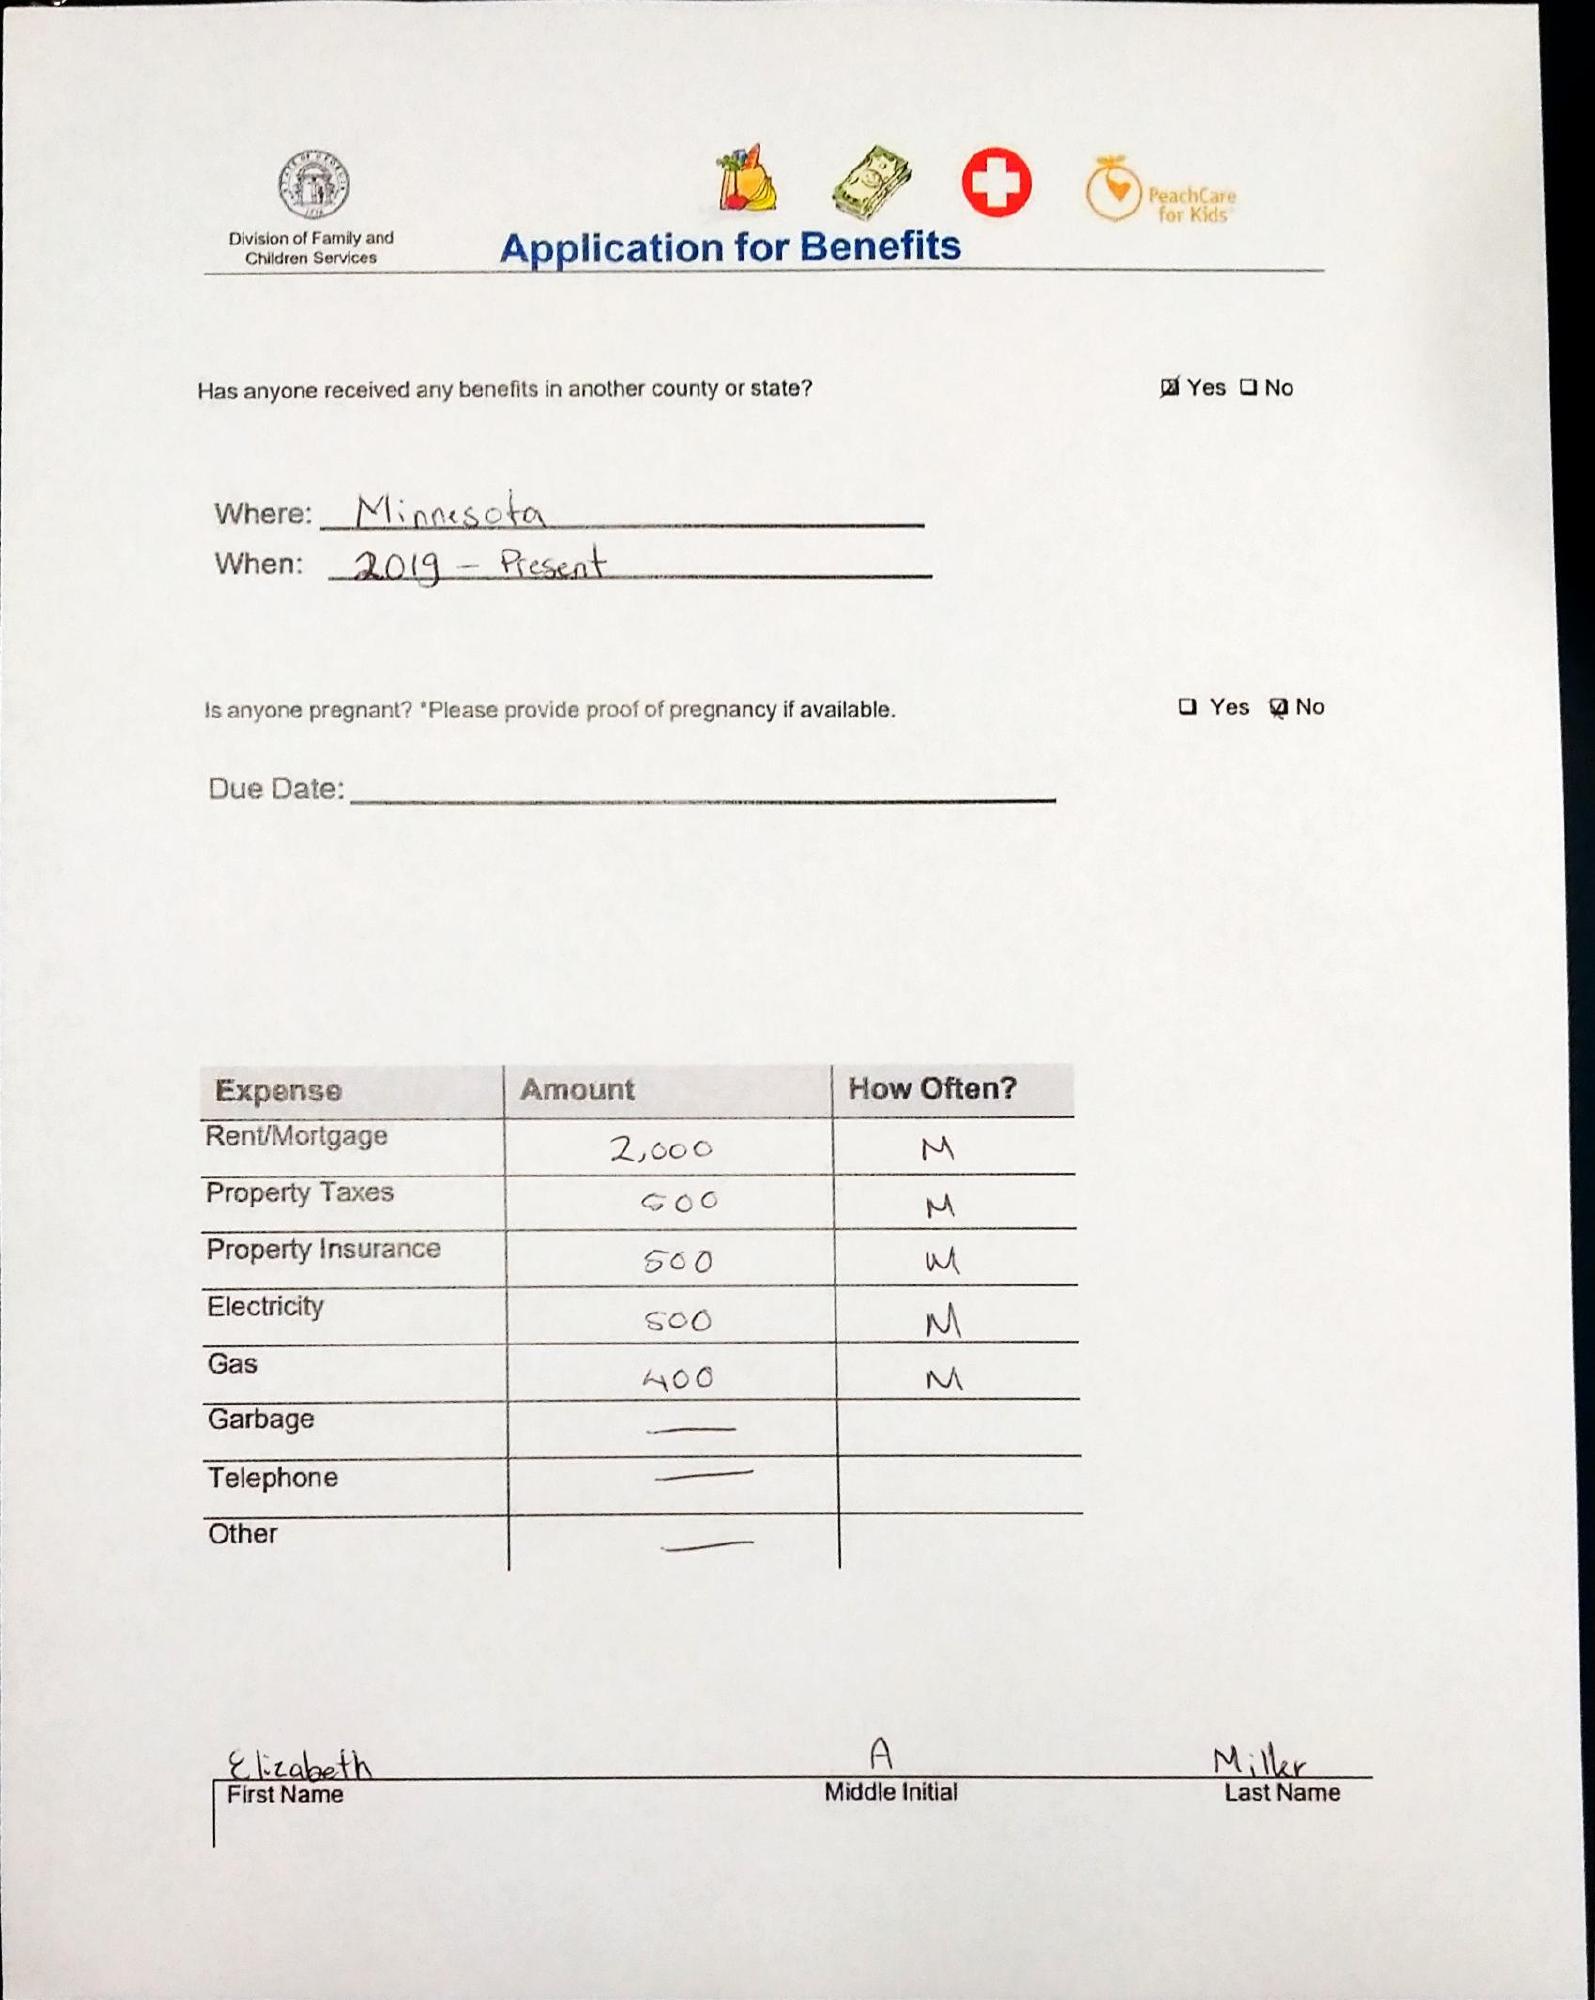 STATE OF GEORGIA
1776
PeachCare
for Kids
Division of Family and
Children Services
Application for Benefits
Has anyone received any benefits in another county or state? ☑ Yes ☐ No
Where: Minnesota
When: 2019 - Present
Is anyone pregnant? *Please provide proof of pregnancy if available. ☐ Yes ☑ No
Due Date:
Expense Amount How Often?
Rent/Mortgage 2,000 M
Property Taxes 500 M
Property Insurance 500 M
Electricity 500 M
Gas 400 M
Garbage —
Telephone —
Other —
Elizabeth A Miller
First Name Middle Initial Last Name